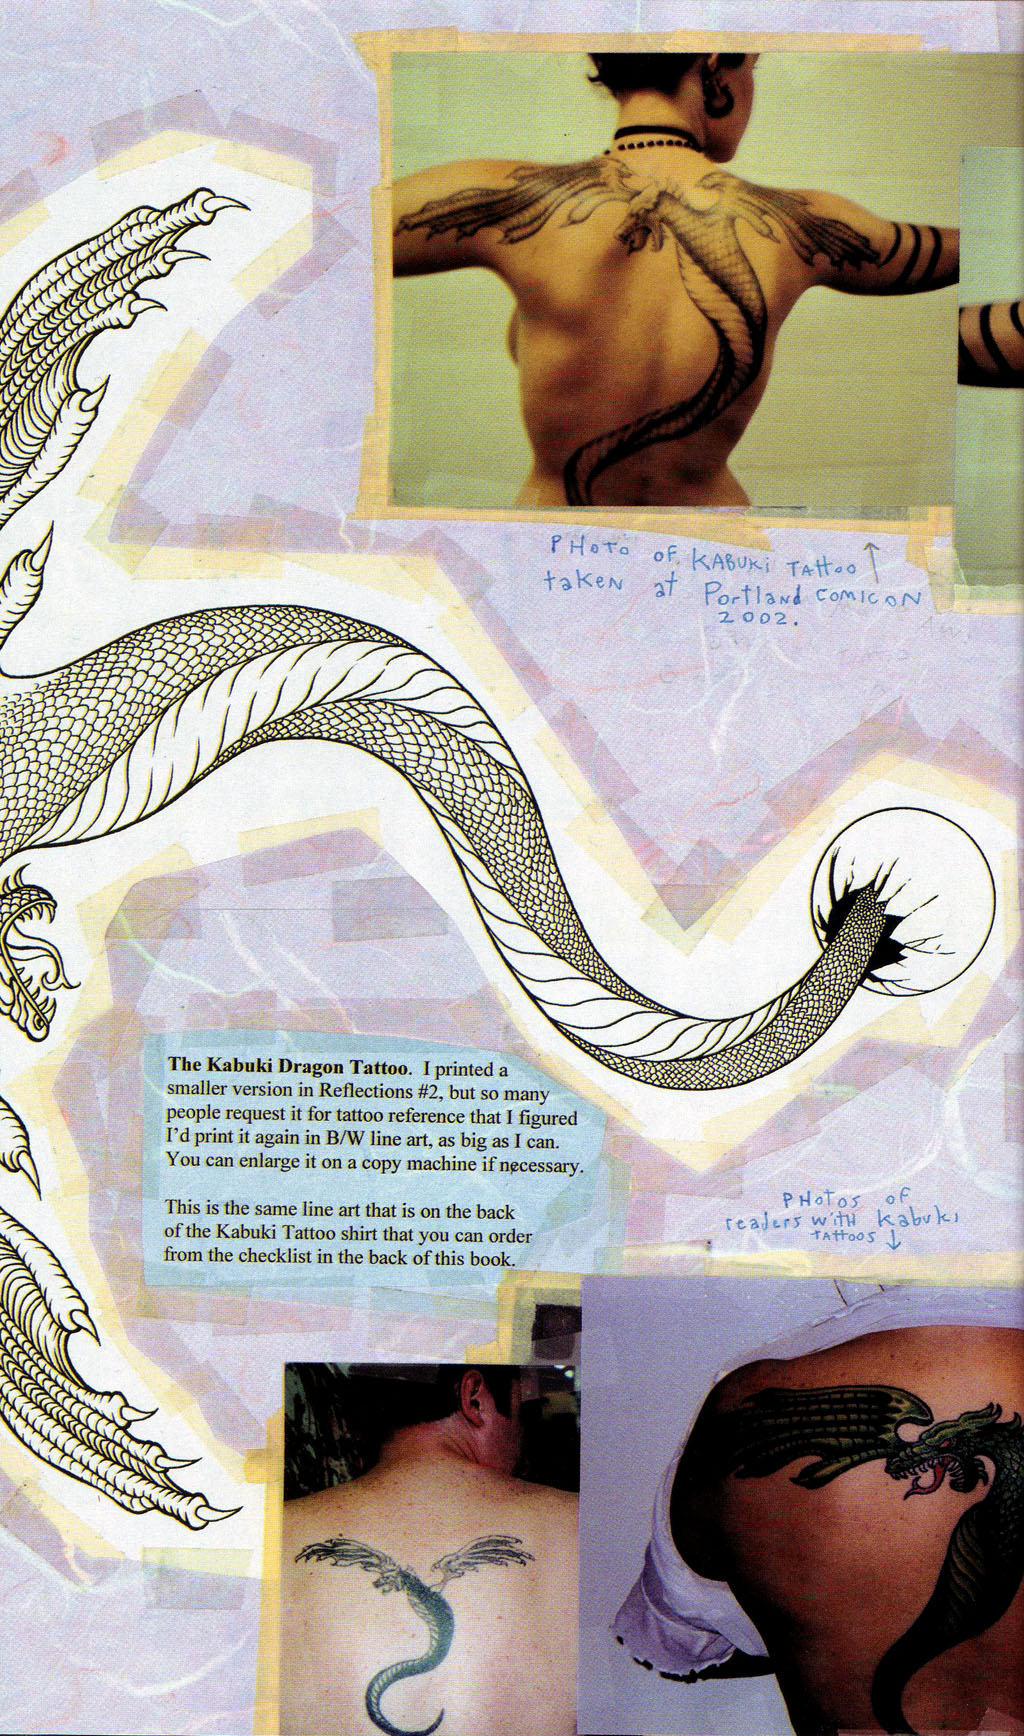 PHOTO OF KABUKI TATTOO
taken at Portland COMICON
2002.
The Kabuki Dragon Tattoo. I printed a
smaller version in Reflections #2, but so many
people request it for tattoo reference that I figured
I'd print it again in B/W line art, as big as I can.
You can enlarge it on a copy machine if necessary.
This is the same line art that is on the back
of the Kabuki Tattoo shirt that you can order
from the checklist in the back of this book.
PHOTOS OF
readers WITH Kabuki
TATTOOS